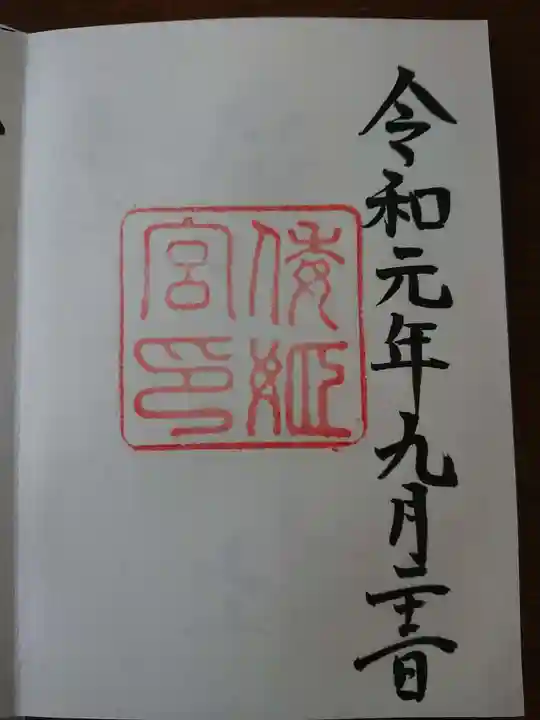 令和元年九月二十三日
倭姫
宮印